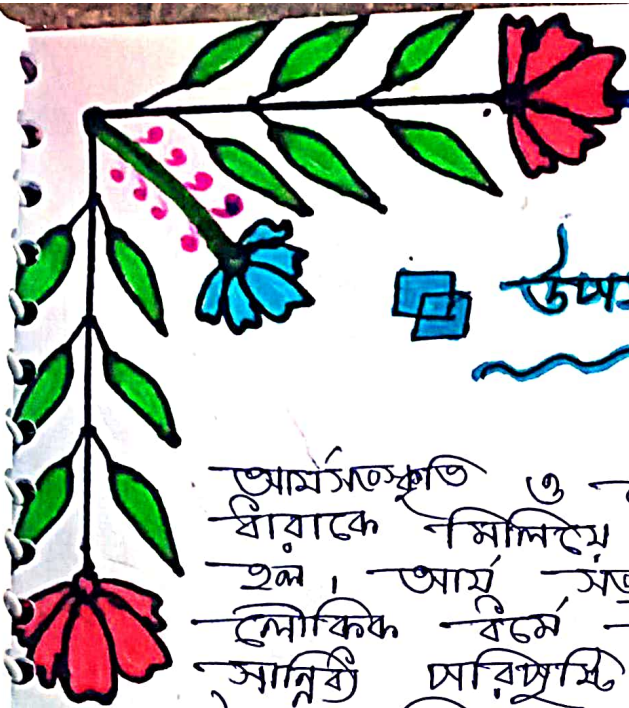 উপস
আর্যসংস্কৃতি ও
ধারাকে মিলিয়ে
হল। আর্য
লৌকিক ধর্মে
সান্নিধ্য পরিপুষ্টি